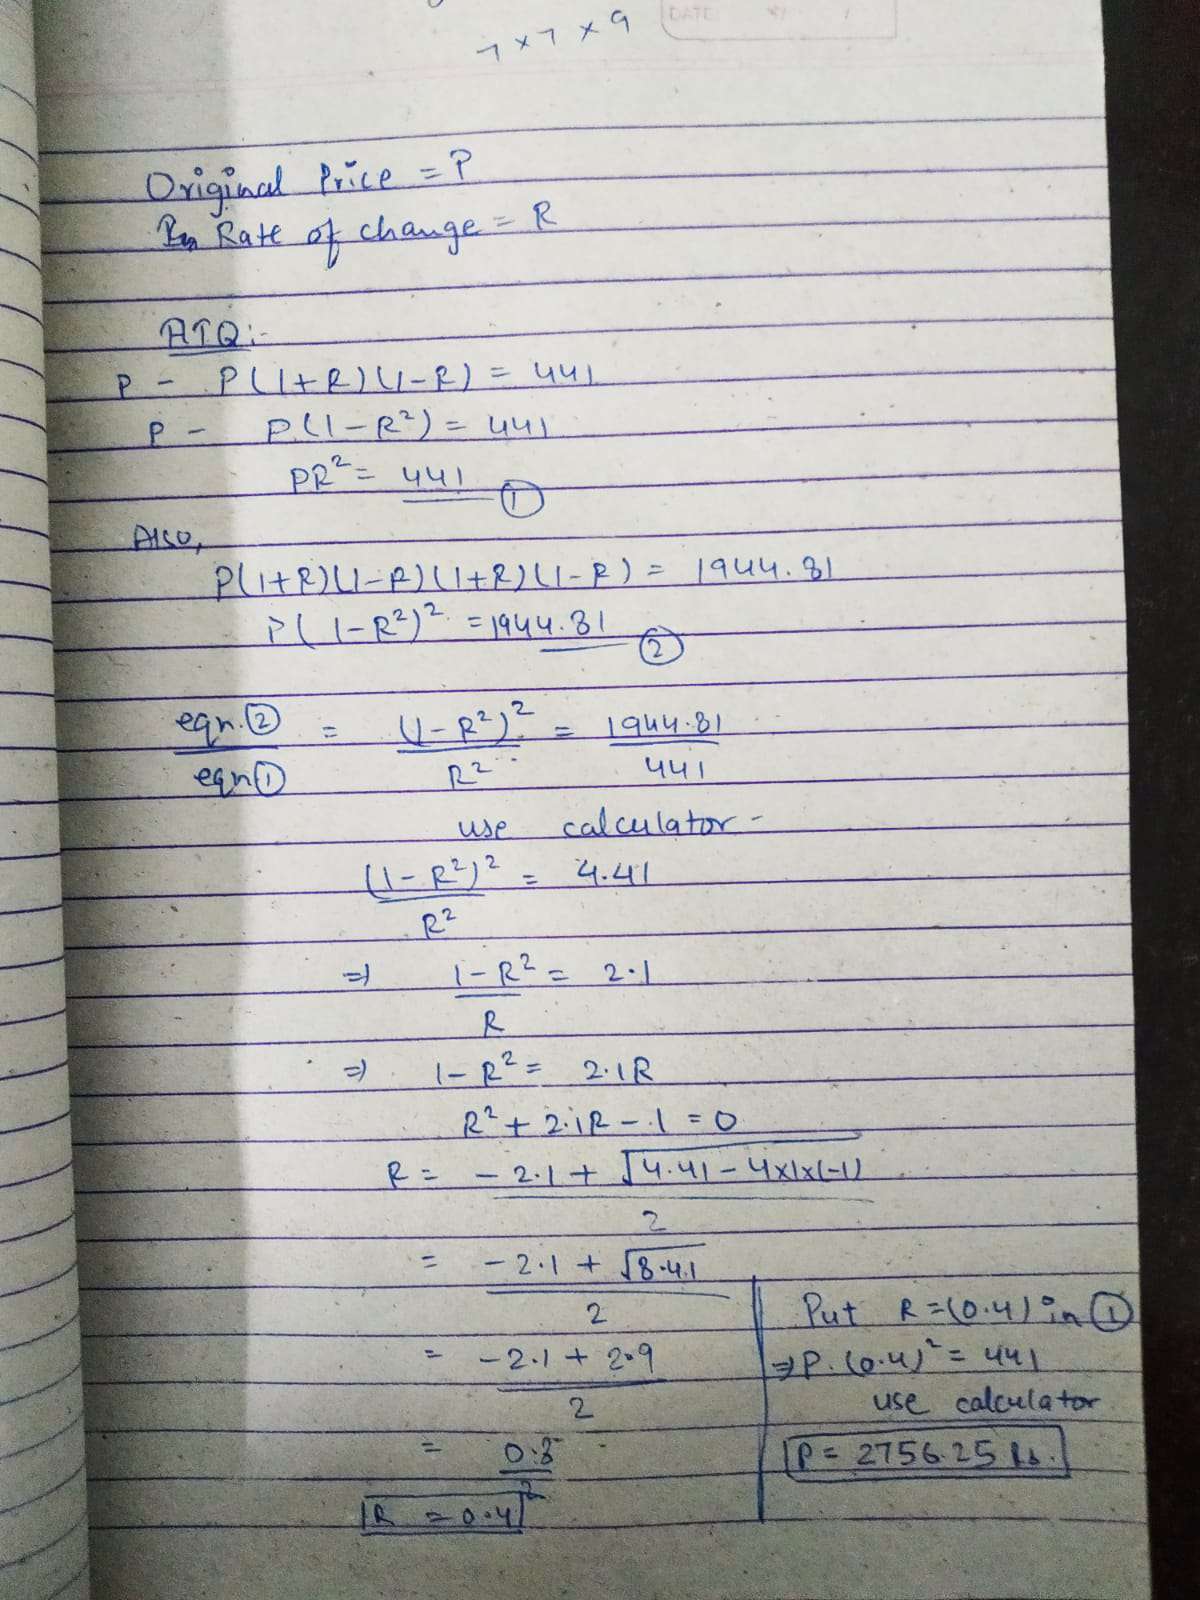 7 × 7 × 9
DATE
Original Price = P
Rate of change = R
ATQ:-
P - P(1+R)(1-R) = 441
P - P(1-R²) = 441
PR² = 441 ①
Also,
P(1+R)(1-R)(1+R)(1-R) = 1944.81
P(1-R²)² = 1944.81 ②
eqn.② = (1-R²)² = 1944.81
eqn① R² 441
use calculator -
(1-R²)² = 4.41
R²
⇒ 1-R² = 2.1
R
⇒ 1-R² = 2.1R
R² + 2.1R - 1 = 0
R = -2.1 + √4.41 - 4×1×(-1)
2
= -2.1 + √8.41
2
= -2.1 + 2.9
2
= 0.8
2
R = 0.4
Put R = (0.4) in ①
⇒ P.(0.4)² = 441
use calculator
P = 2756.25 Rs.